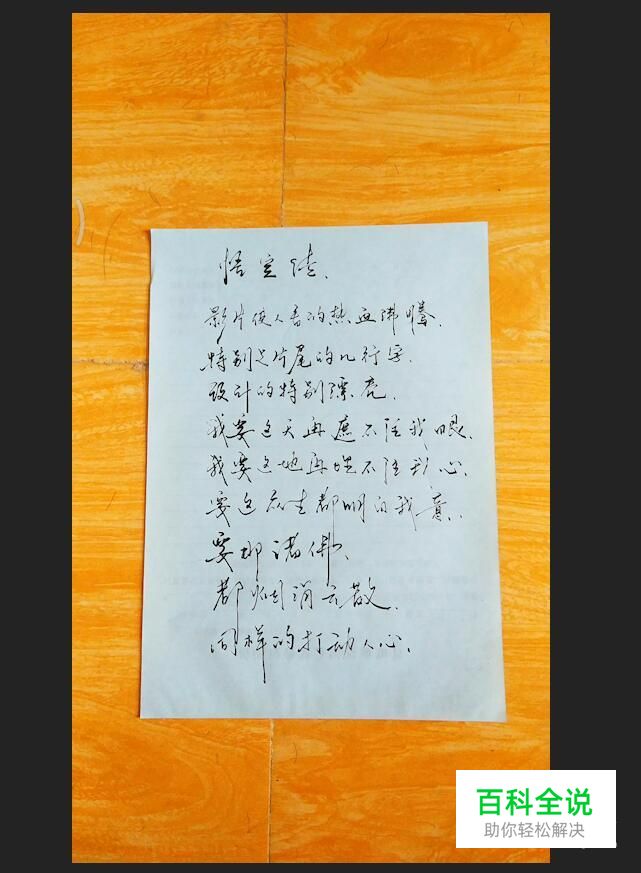 悟空传.
影片使人看的热血沸腾.
特别是片尾的几行字.
设计的特别漂亮.
我要这天再遮不住我眼.
我要这地再埋不住我心.
要这众生都明白我意.
要那诸佛.
都烟消云散.
同样的打动人心.
百科全说
助你轻松解决